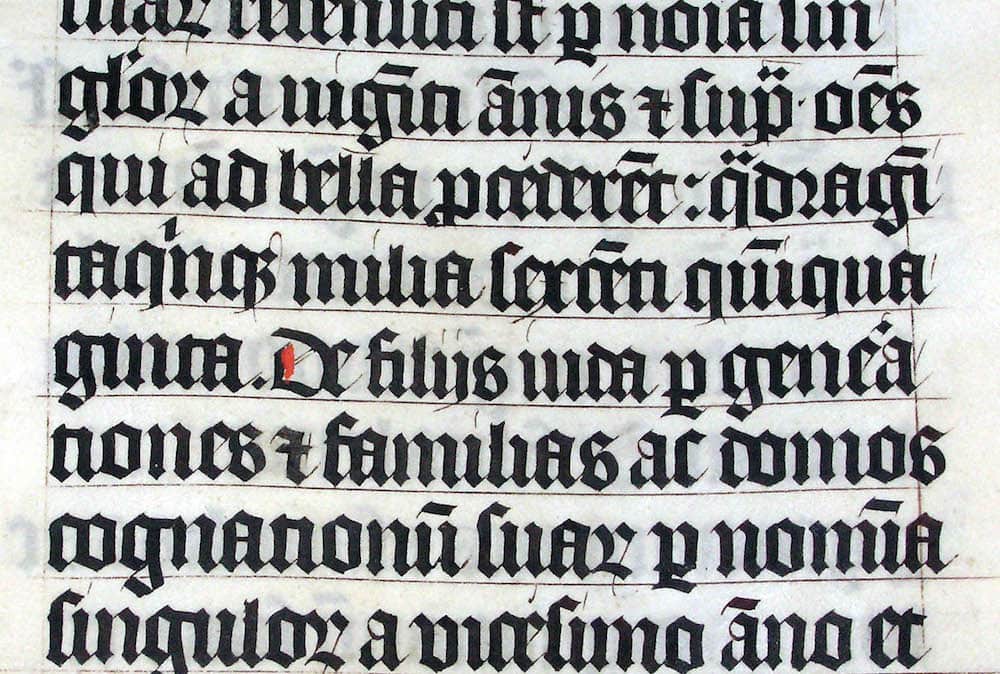 suaꝝ recensiti st̄ ꝑ noīa sin
gĺoꝝ a uigīti ānis ⁊ sup̈· oēs
qui ad bella ꝓcederēt: q̈dragī
taqͥnqꝫ milia sexcēti quīqua
ginta. De filijs iuda ꝑ geneᷓa
tiones ⁊ familias ac domos
cognationū suaꝝ ꝑ nomīa
singuloꝝ a vicesimo āno et